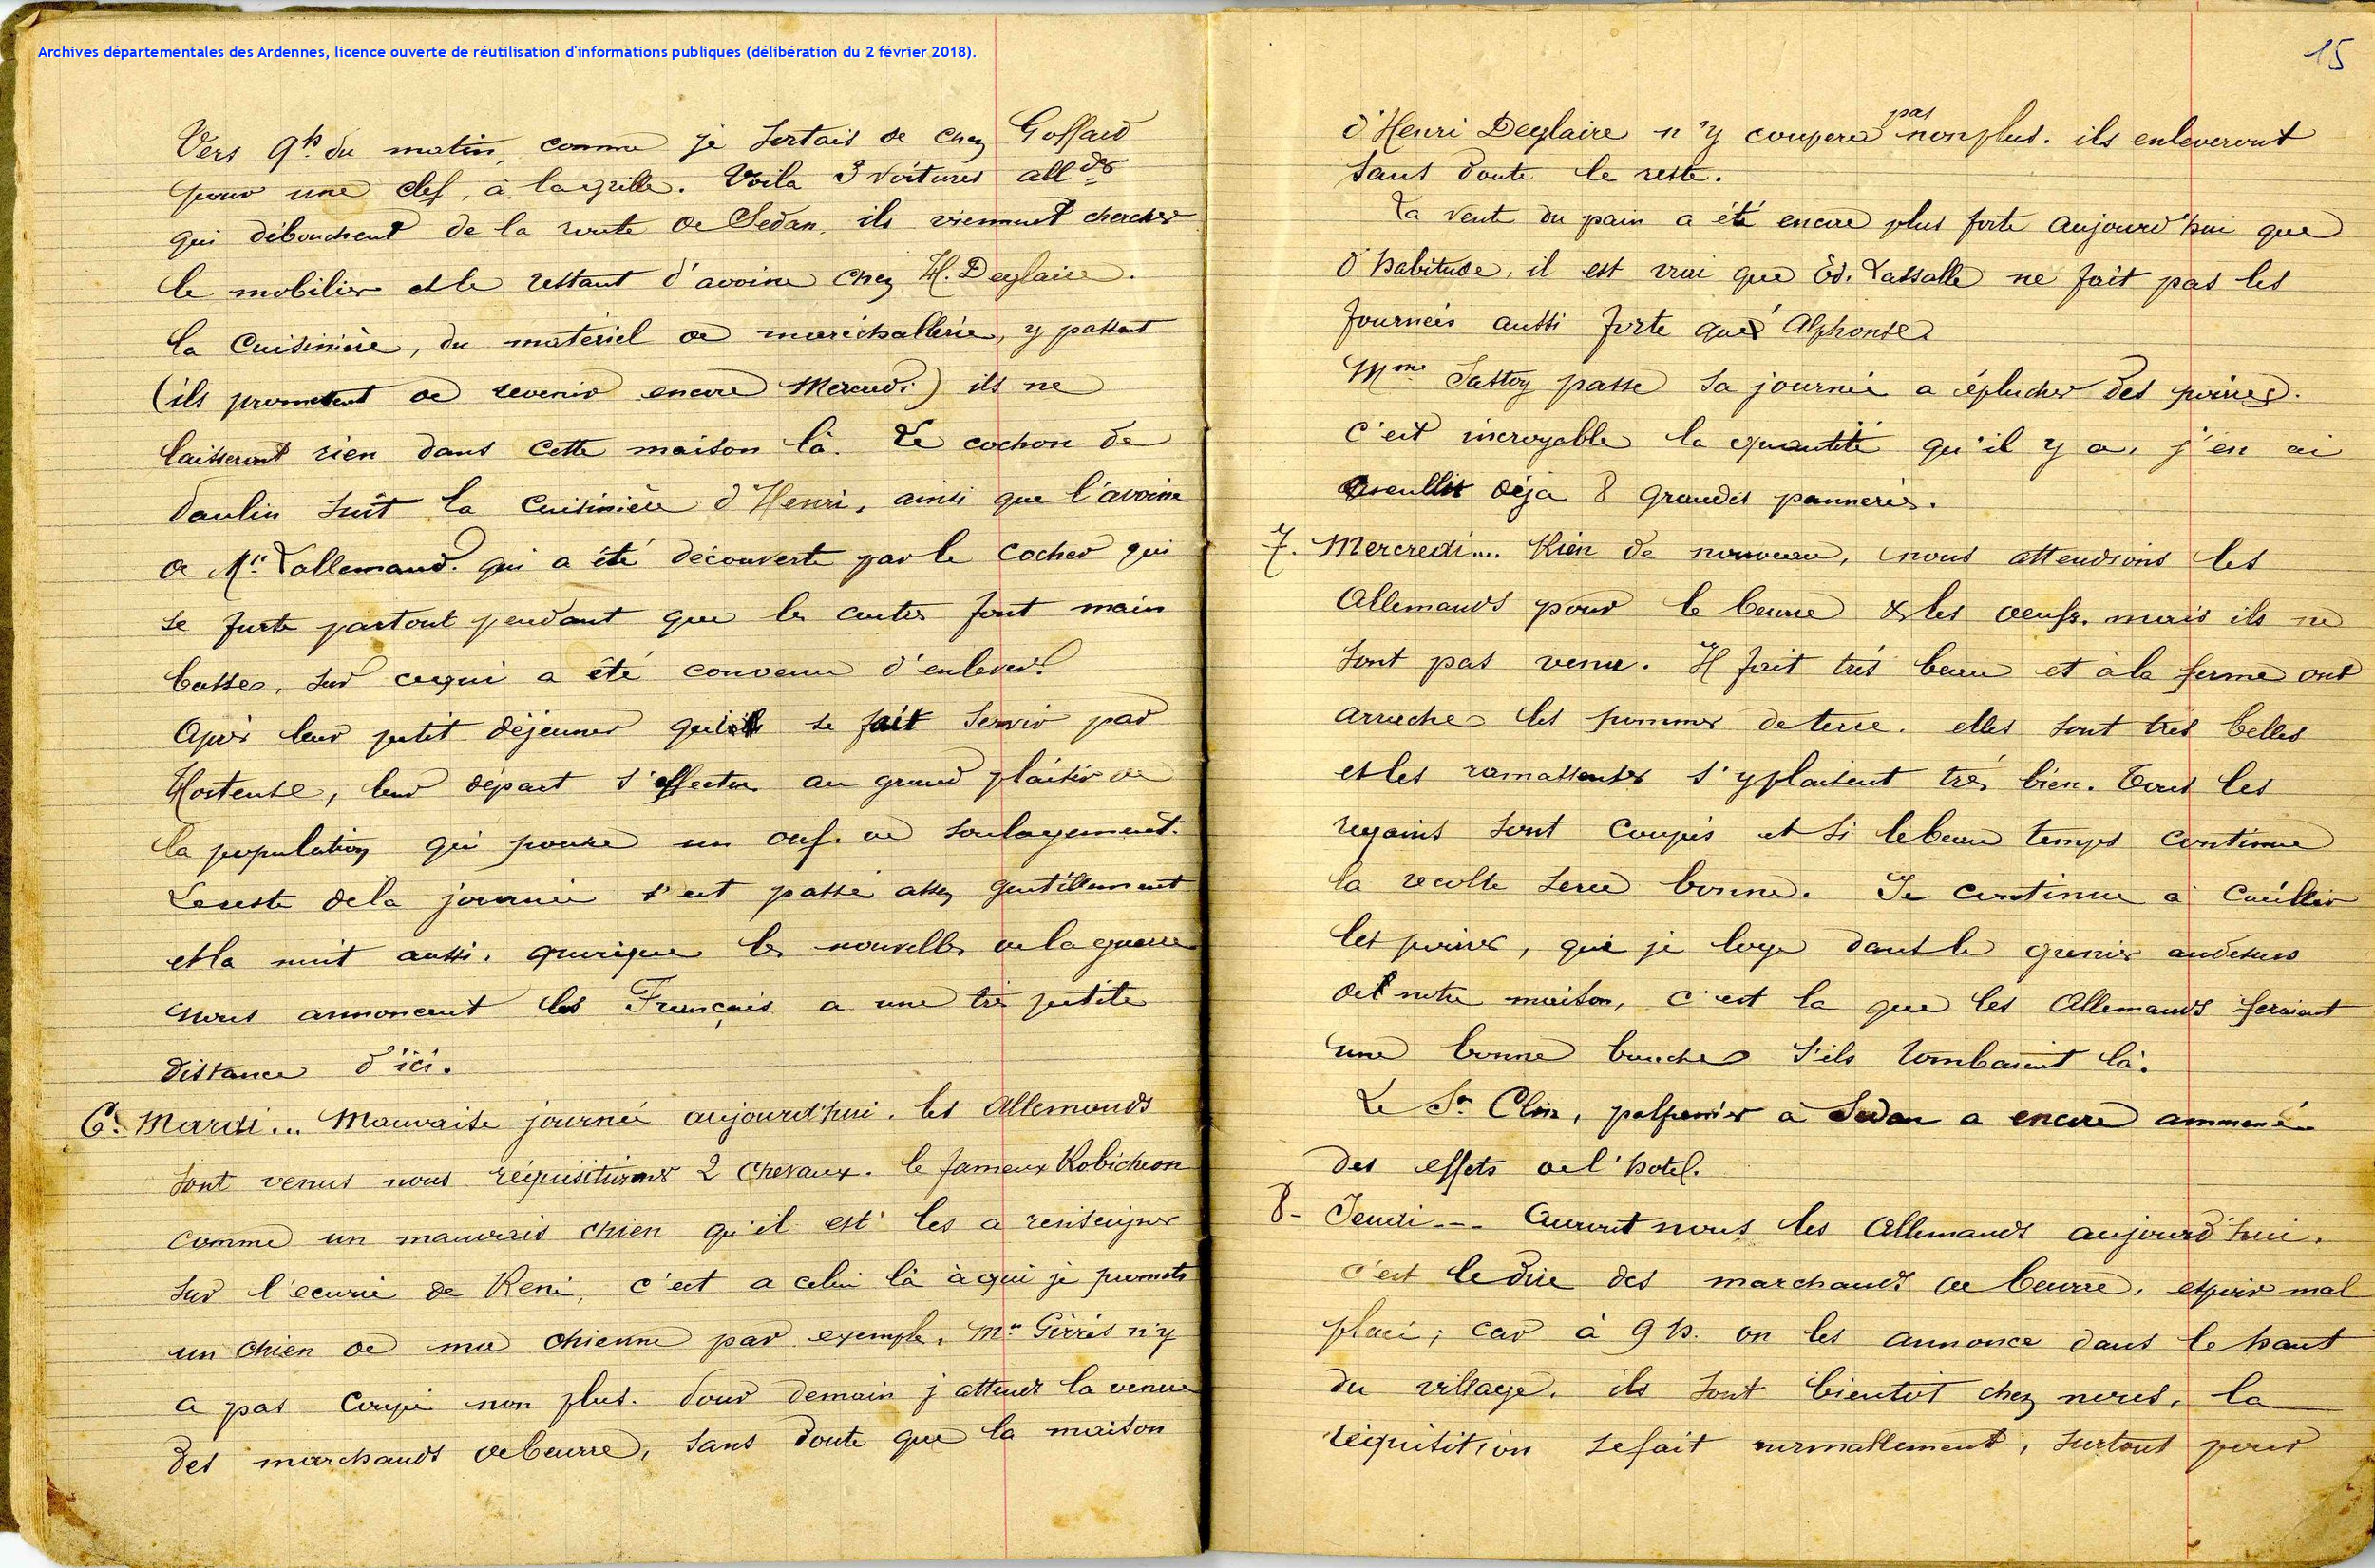 Archives départementales des Ardennes, licence ouverte de réutilisation d'informations publiques (délibération du 2 février 2018).
Vers 9h. du matin, comme je sortais de chez Goffard
pour une clef, à la grille. Voila 3 voitures all des
qui débouchent de la route de Sedan, ils viennent chercher
le mobilier et le restant d'avoine chez H. Deglaire.
la Cuisinière, du matériel de maréchallerie, y passent
(ils promettent de revenir encore Mercredi) ils ne
laisseront rien dans cette maison là. Le cochon de
Paulin suit la cuisinière d'Henri, ainsi que l'avoine
de Mr. Lallemand. qui a été découverte par le cocher qui
se furte partout pendant que les autres font main
basse, sur cequi a été convenu d'enlever.
Après leur petit déjeuner se fait servir par
Hortense, leur départ s'effectue au grand plaisir de
la population qui pousse un ouf. de soulagement.
Le reste de la journée s'est passé assez gentillement
et la nuit aussi. quoique les nouvelles de la guerre
nous annoncent les Français a une très petite
distance d'ici.
6. Mardi... Mauvaise journée aujourd'hui. les Allemands
sont venus nous réquisitionner 2 chevaux. le fameux Robichon
comme un mauvais chien qu'il est les a renseigner
sur l'écurie de René, c'est a celui là à qui je promets
un chien de ma chienne par exemple. Mr Girrès n'y
a pas coupé non plus. Pour demain j'attends la venue
des marchands de beurre, sans doute que la maison
15
d'Henri Deglaire n'y coupera pas non plus. ils enleveront
sans doute le reste.
La vente du pain a été encore plus forte aujourd'hui que
d'habitude, il est vrai que Ed. Lassalle ne fait pas les
fournées aussi forte que Alphonse
Mme Sastoy passe sa journée a éplucher des poires.
c'est incroyable la quantité qu'il y a, j'en ai
déja 8 grandes pannerès.
7. Mercredi... Rien de nouveau, nous attendions les
Allemands pour le beurre & les oeufs. mais ils ne
sont pas venu. Il fait très beau et à la ferme ont
arrache les pommes de terre. elles sont tres belles
et les s'y plaisent très bien. Tous les
regains sont coupés et si le beau temps continue
la recolte sera bonne. Je continue à cueillir
les poires, que je loge dans le grenier audessus
de notre maison, c'est la que les Allemands feraient
une bonne bouche s'ils tombaient là.
Le Sr. Cloix, à Sedan a encore ammené
des effets de l'hotel.
8- Jeudi --- Auront nous les Allemands aujourd'hui.
c'est le dire des marchands de beurre, espoir mal
placé; car à 9 h. on les annonce dans le haut
du village. ils sont bientot chez nous, la
réquisition se fait normallement, surtout pour